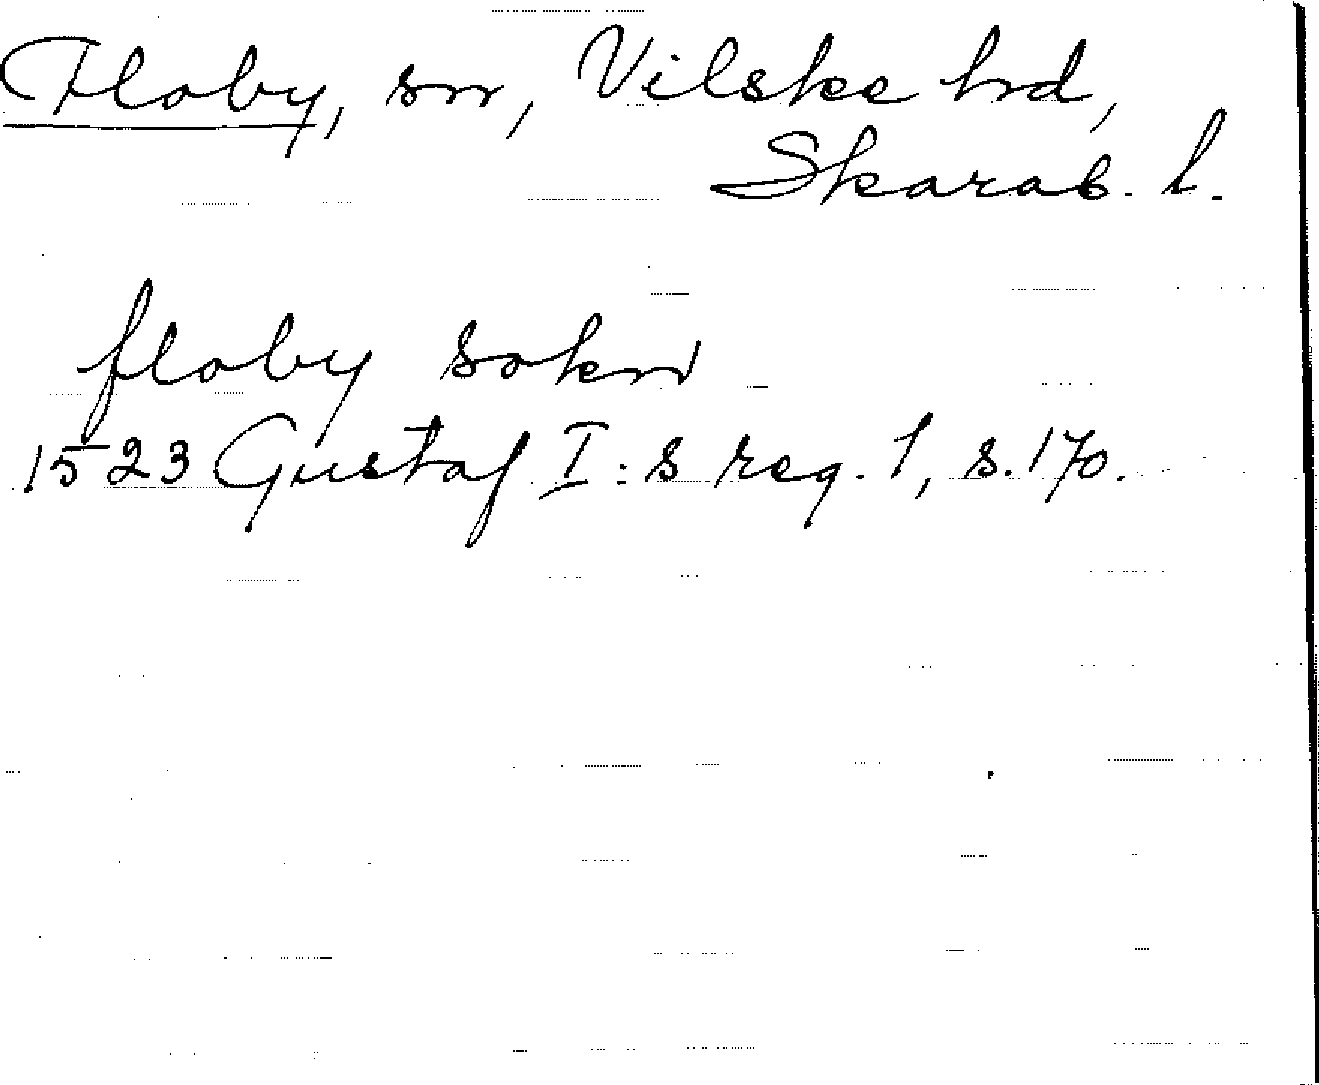 Floby, sn, Vilske hrd,
Skarab. l.
floby sokn
1523 Gustaf I:s reg. 1, s. 170.